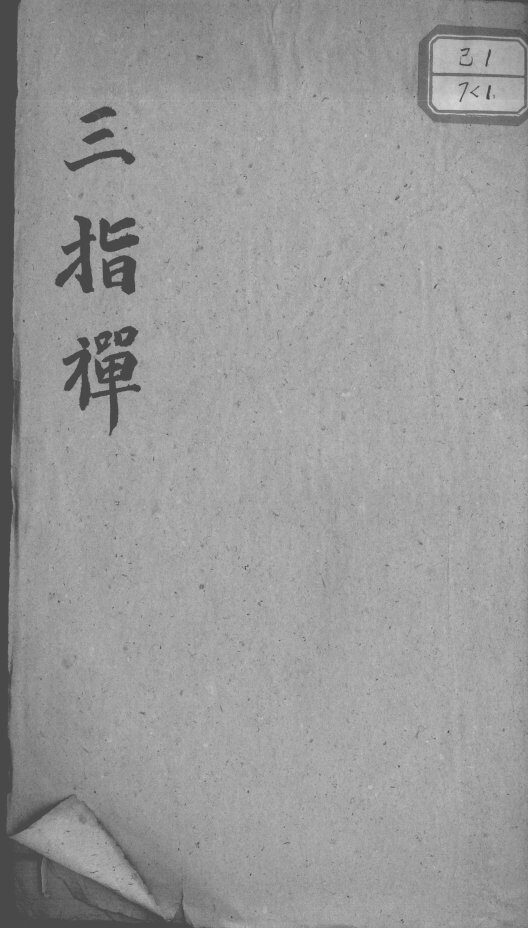 三指禪
己1
7<1.